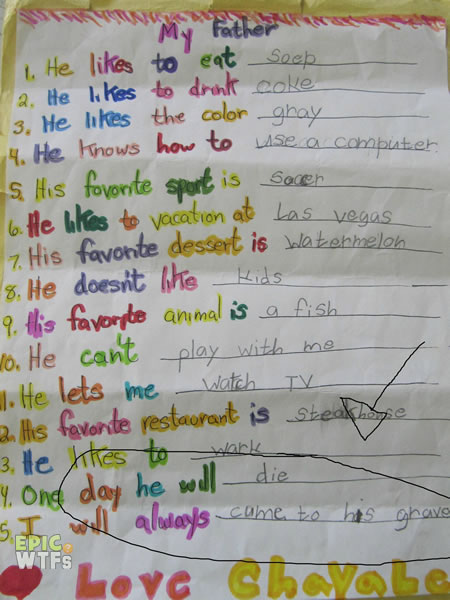 My Father
1. He likes to eat soep
2. He likes to drink coke
3. He likes the color gray
4. He knows how to use a computer
5. His favorite sport is soccer
6. He likes to vacation at Las vegas
7. His favorite dessert is watermelon
8. He doesn't like kids
9. His favorite animal is a fish
10. He can't play with me
11. He lets me watch TV
2. His favorite restaurant is steakhouse
3. He likes to wark
4. One day he will die
5. I will always came to his grave
EPIC WTFs
Love Chavale